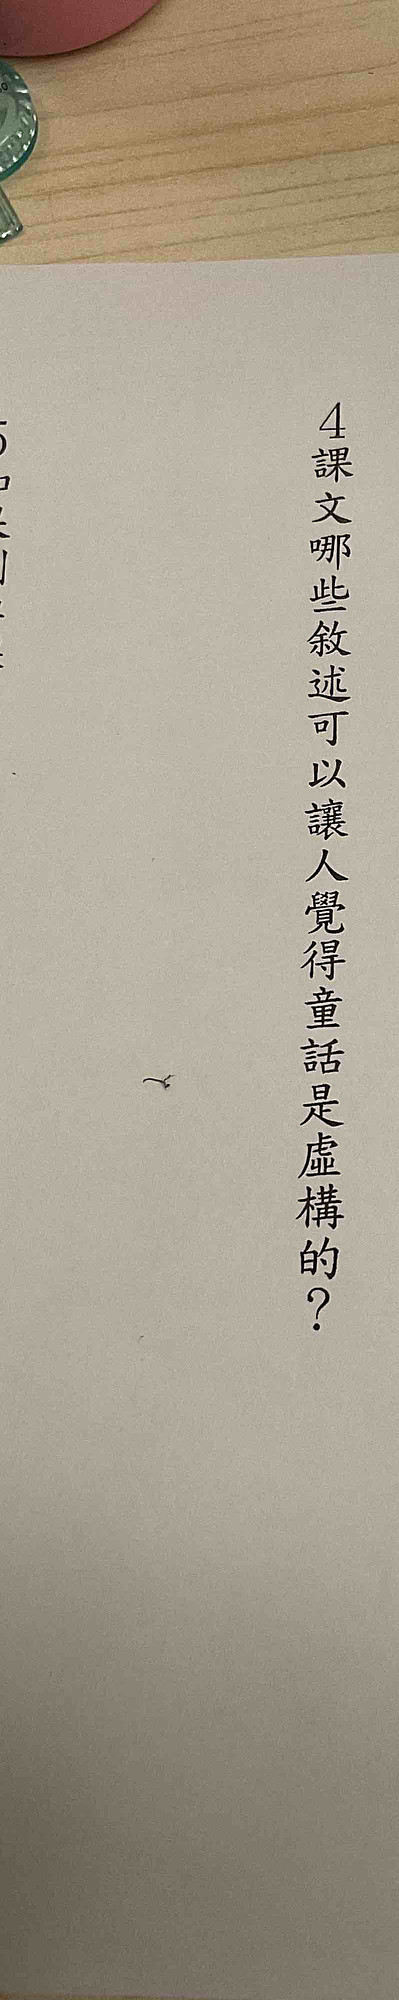 4課文哪些敘述可以讓人覺得童話是虛構的？